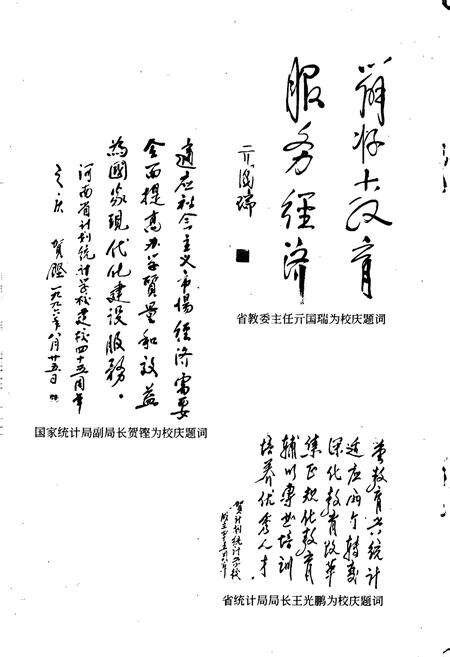 办好教育
服务经济
亓国瑞
省教委主任亓国瑞为校庆题词
適应社会主义市場经济需要
全面提高办学質量和效益
為國家現代化建設服務。
河南省计划统计学校建校四十五周年
之庆 贺铿 一九九六年八月廿五日
国家统计局副局长贺铿为校庆题词
教育 统计
适应两个转变
深化教育改革
正规化教育
辅以专业培训
培养优秀人才
贺计划统计学校
成立四十五周年
省统计局局长王光鹏为校庆题词